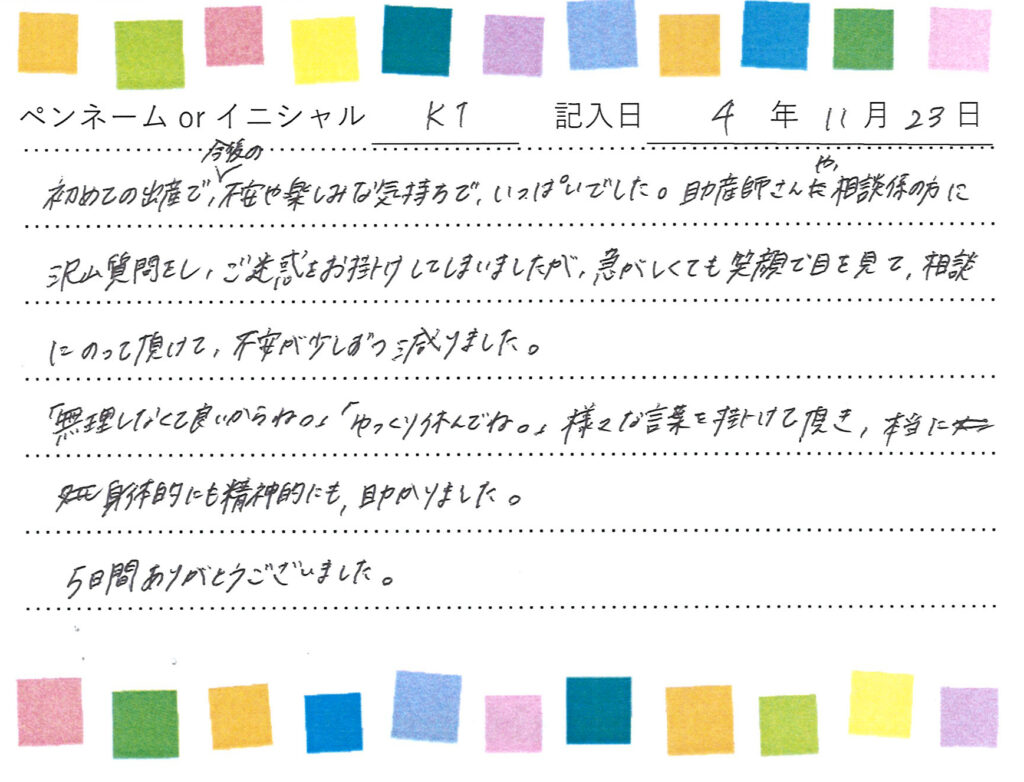 ペンネーム or イニシャル K1 記入日 4 年 11 月 23 日
今後の
初めての出産で、不安や楽しみな気持ちで、いっぱいでした。助産師さんや、相談係の方に
沢山質問をし、ご迷惑をお掛けしてしまいましたが、急がしくても笑顔で目を見て、相談
にのって頂けて、不安が少しずつ減りました。
「無理しなくて良いからね。」「ゆっくり休んでね。」様々な言葉を掛けて頂き、本当に
身体的にも精神的にも、助かりました。
5日間ありがとうございました。